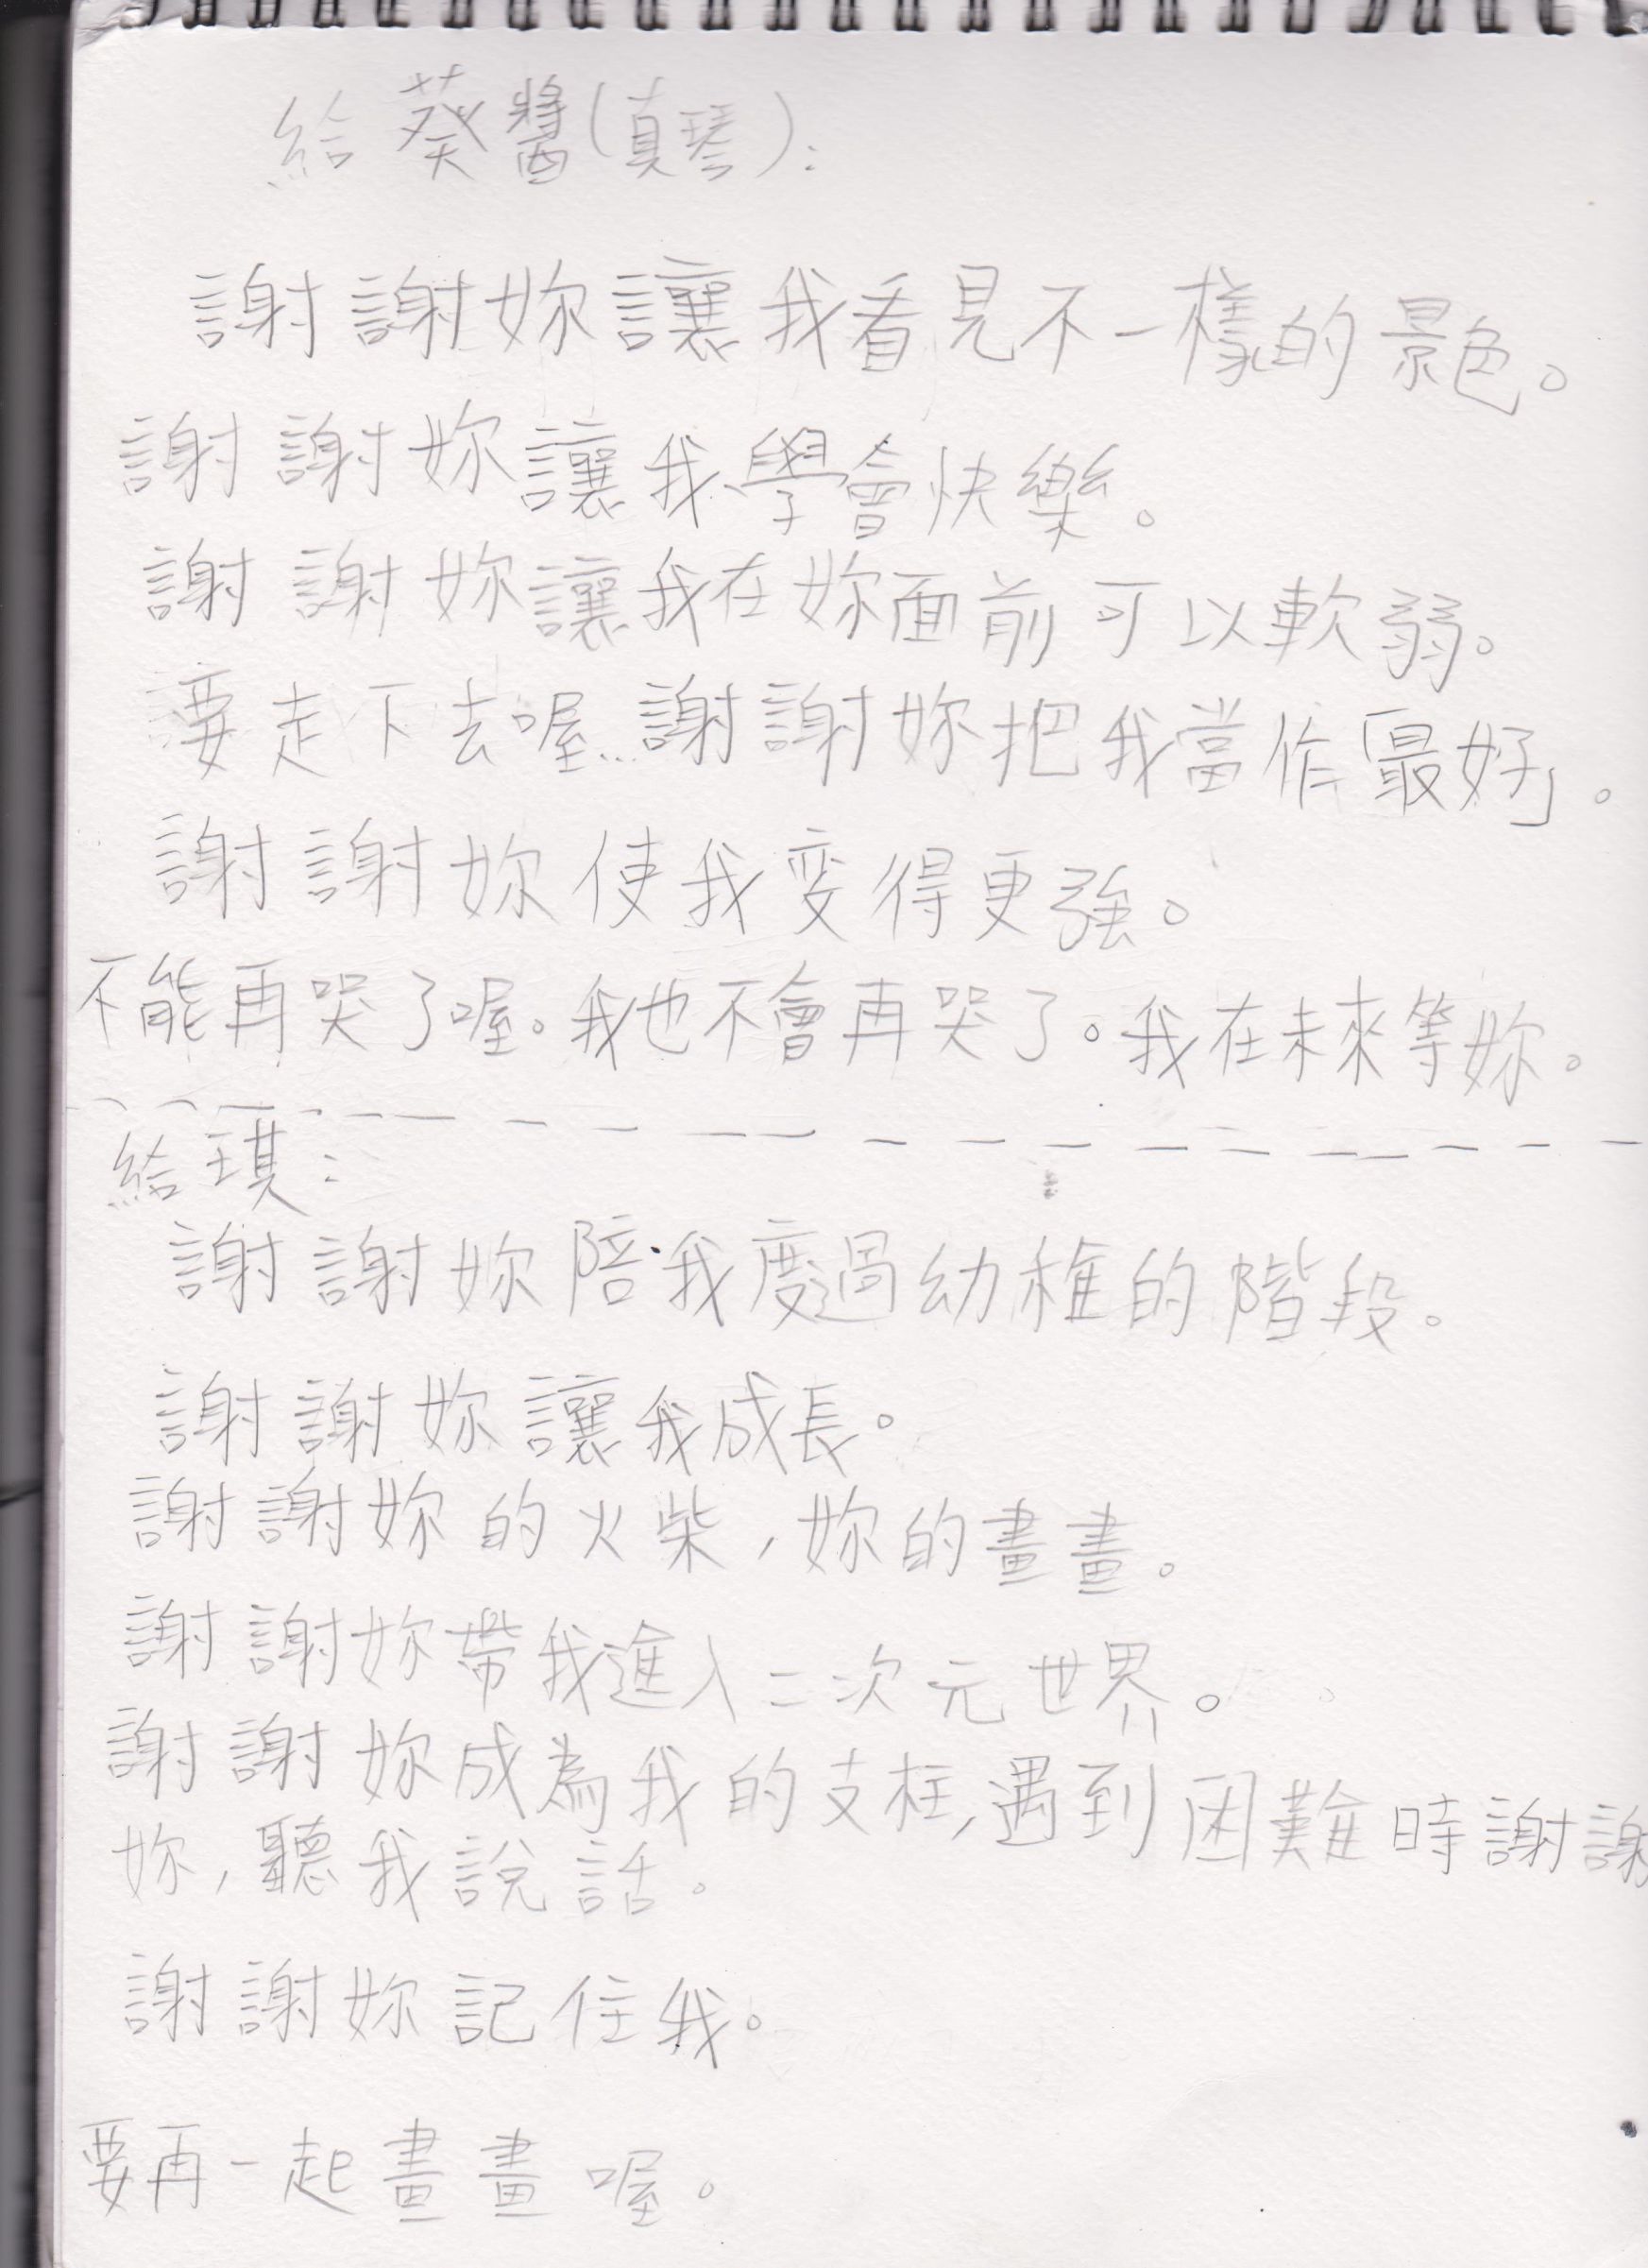 給葵醬(真琴):
謝謝妳讓我看見不一樣的景色。
謝謝妳讓我學會快樂。
謝謝妳讓我在妳面前可以軟弱。
要走下去喔...謝謝妳把我當作「最好」。
謝謝妳使我變得更強。
不能再哭了喔。我也不會再哭了。我在未來等妳。
給琪:
謝謝妳陪我度過幼稚的階段。
謝謝妳讓我成長。
謝謝妳的火柴,妳的畫畫。
謝謝妳帶我進入二次元世界。
謝謝妳成為我的支柱,遇到困難時謝謝
妳,聽我說話。
謝謝妳記住我。
要再一起畫畫喔。